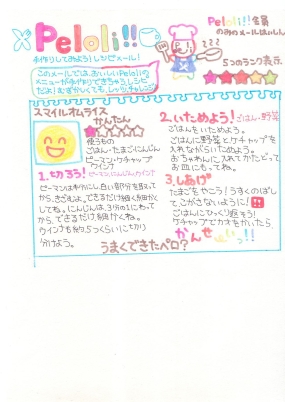 Peloli!!
手作りしてみよう!レシピメール!
Peloli!!会員
のみのメールはいしん
このメールでは、おいしいPeloliの
メニューが手作りできちゃうレシピ
だよ!むずかしくても、しっかりチャレンジ
5つのランク表示
スマイルオムライス
かんたん
使うもの
ごはん・たまご・にんじん
ピーマン・ケチャップ
ウインナ
1.切ろう!ピーマン、にんじん、ウインナ
ピーマンは半分にし、白い部分を取って
から、きざむよ。できるだけ細く
してね。にんじんは、3分の1にわって
から、できるだけ細かくね。
ウインナも約5つくらいに切り
分けよう。
2.いためよう!ごはん・野菜
ごはんをいためよう。
ごはんに野菜とケチャップを
入れながらいためよう。
おちゃわんに入れてかたどって
お皿にもってね。
3.しあげ
たまごをやこう!うすくのばし
て、こがさないように!!
ごはんにひっくり返そう!
ケチャップでかおをかいたら、
かんせーいっ!!
うまくできたペロ?